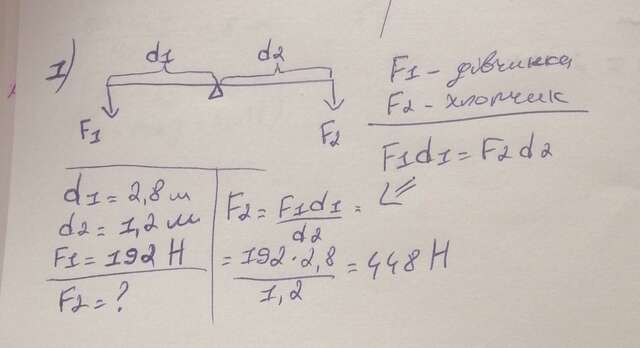 1)
d1 d2
F1 F2
F1 - дівчинка
F2 - хлопчик
F1d1 = F2d2
d1 = 2,8 м
d2 = 1,2 м
F1 = 192 Н
F2 = ?
F2 = F1d1 / d2 =
= 192·2,8 / 1,2 = 448 Н